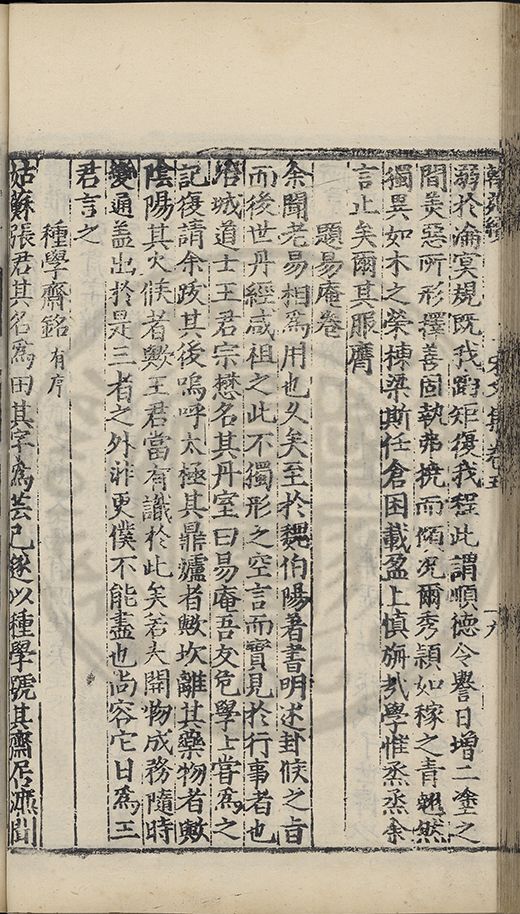 溺於淪冥規既我蹈矩復我程此謂順德令譽日增二塗之
間美惡所形擇善固執弗撓而傾况爾秀穎如稼之青翹然
獨異如木之榮棟梁斯任倉囷載盈上慎旃哉學惟烝烝余
言止矣爾其服膺
題易庵卷
余聞老易相爲用也久矣至於魏伯陽著書明述卦候之旨
而後世丹經咸祖之此不獨形之空言而實見於行事者也
培城道士王君宗懋名其丹室曰易庵吾友危學上嘗爲之
記復請余跋其後嗚呼太極其鼎爐者歟坎離其藥物者歟
陰陽其火候者歟王君當有識於此矣若夫開物成務隨時
變通盖出於是三者之外非更僕不能盡也尚容它日爲王
君言之
種學齋銘有序
姑蘇張君其名爲田其字爲芸己遂以種學號其齋居濂聞